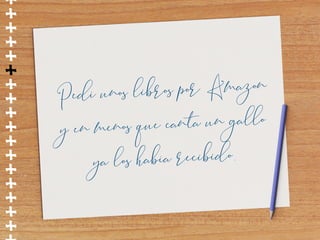 Pedí unos libros por Amazon
y en menos que canta un gallo
ya los había recibido.